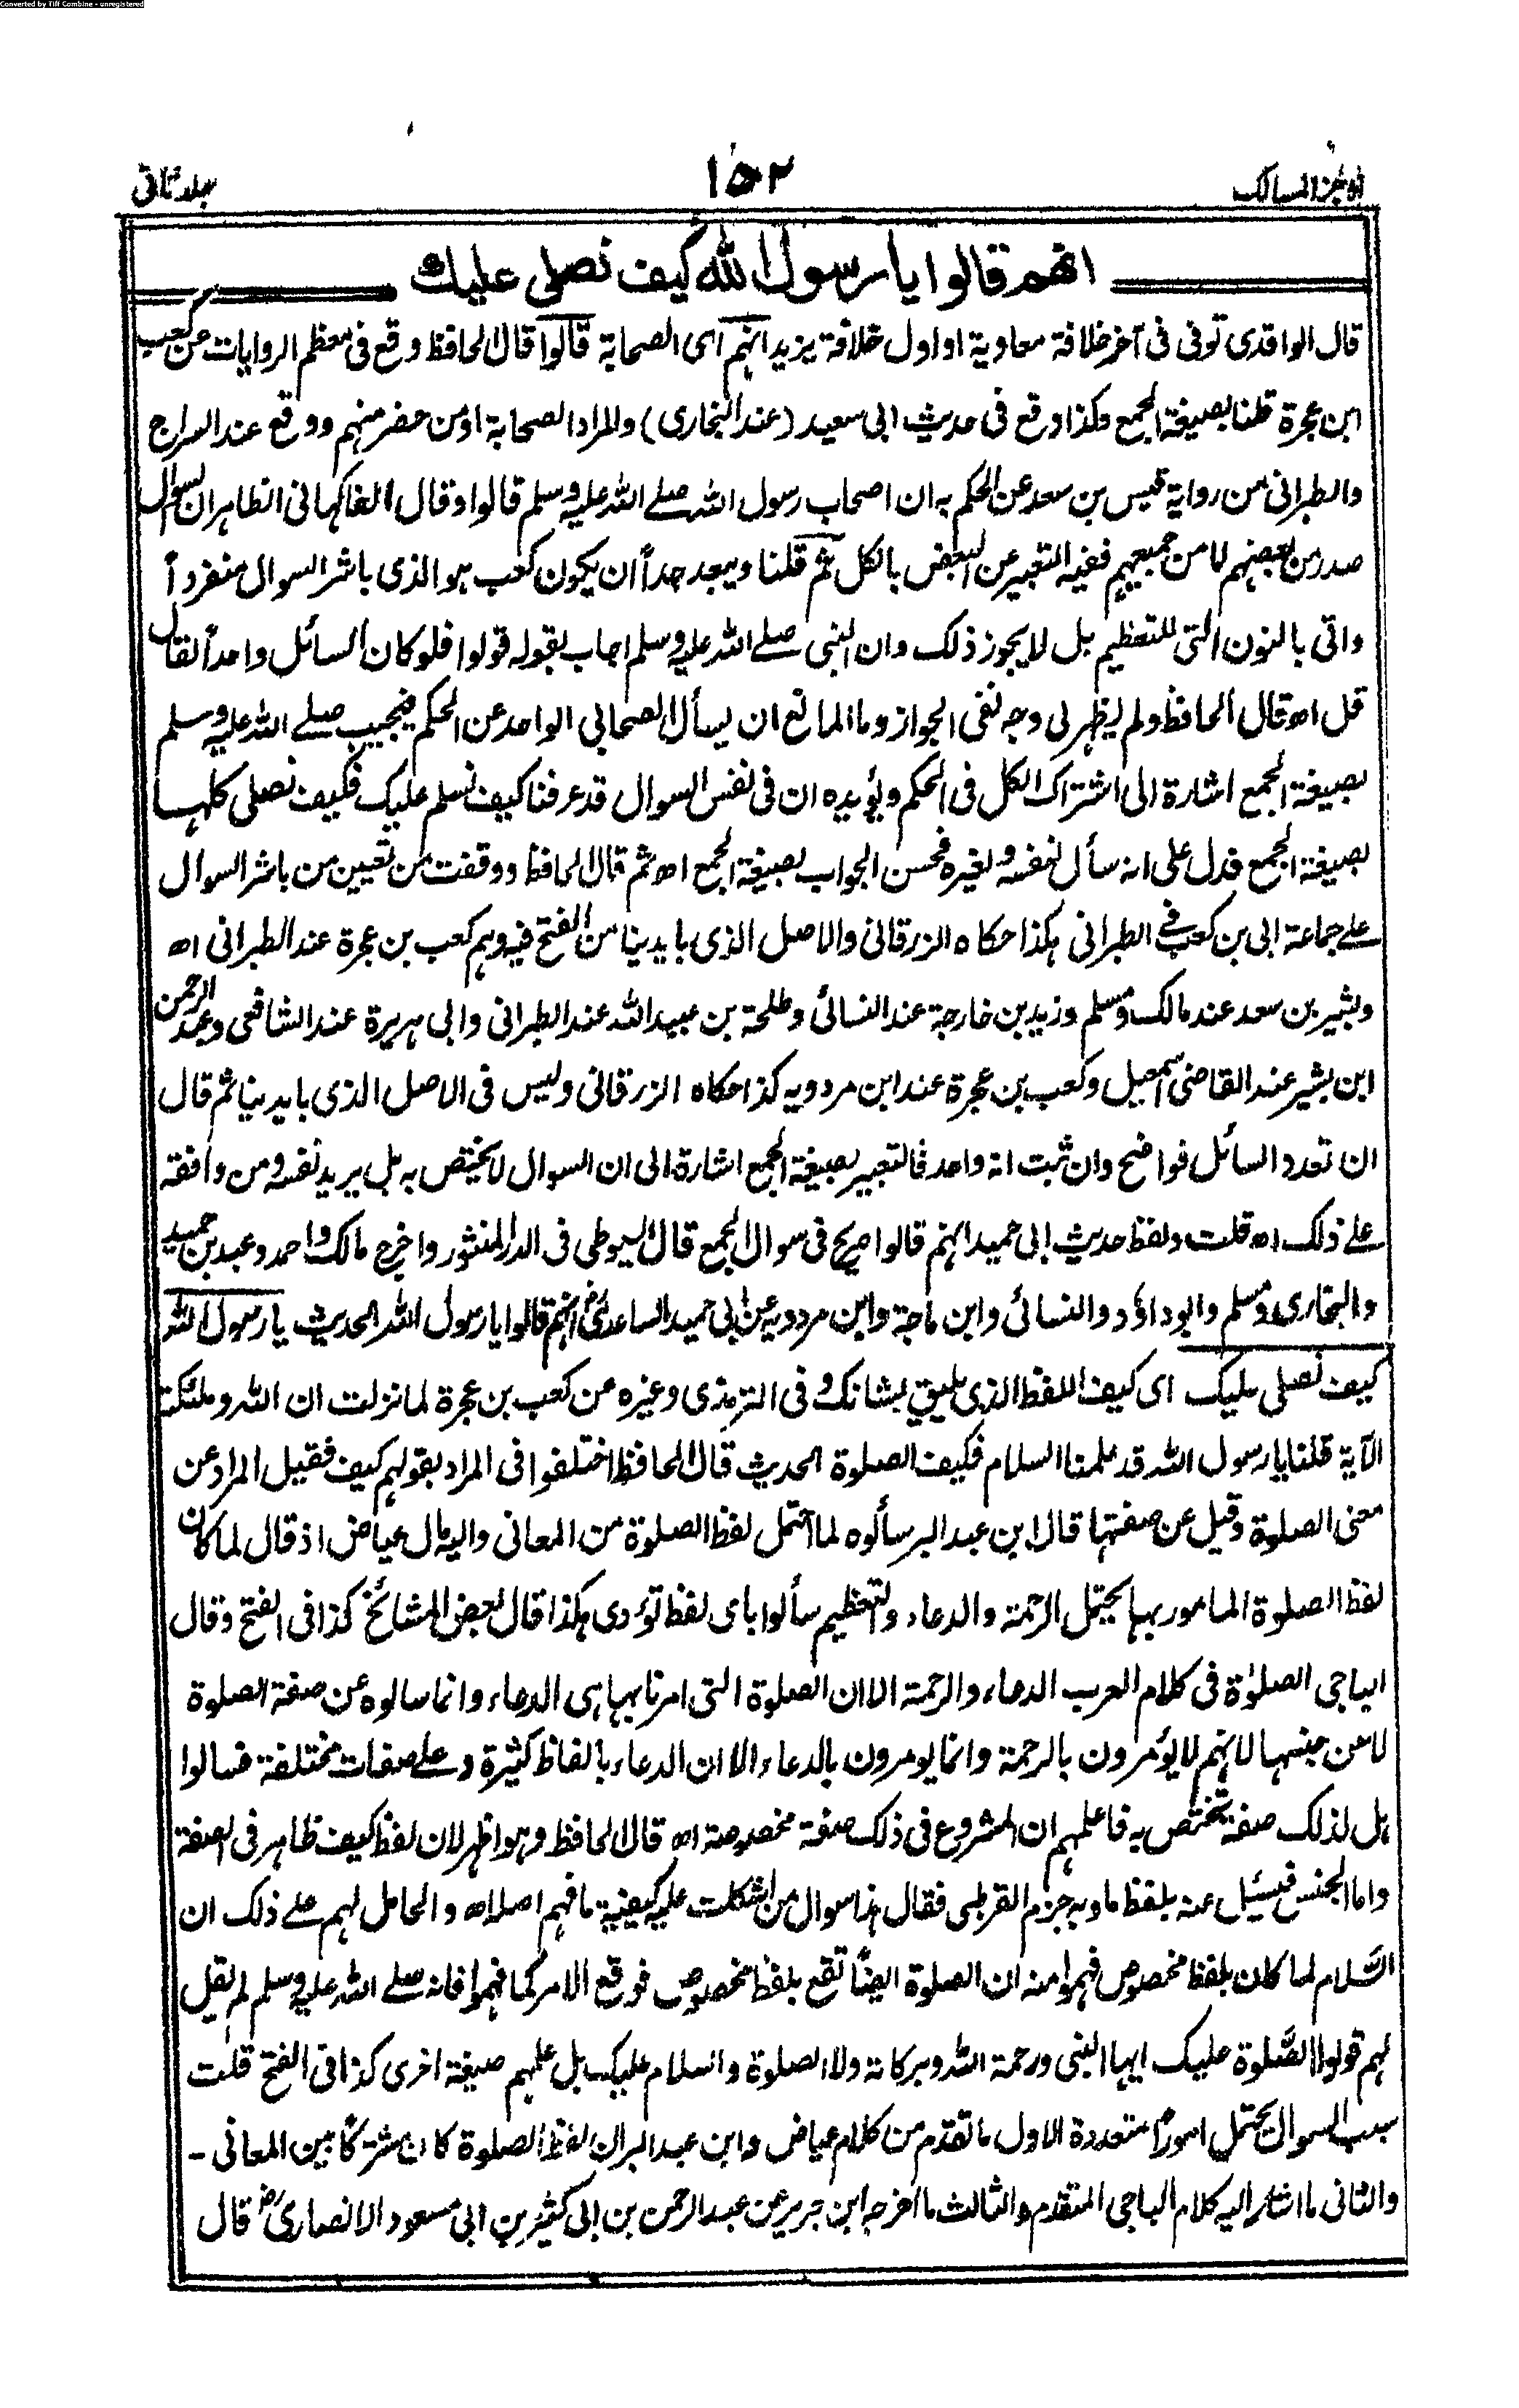 Converted by Tiff Combine - unregistered
اوجز المسالك ١٥٢ جلد ثانی
انهم قالوا يا رسول الله كيف نصلى عليك
قال الواقدى توفى فى آخر خلافة معاوية او اول خلافة يزيد انهم اى الصحابة قالوا قال الحافظ وقع فى معظم الروايات عن كعب
ابن عجرة قلنا بصيغة الجمع وكذا وقع فى حديث ابى سعيد (عند البخارى) والمراد الصحابة او من حضر منهم ووقع عند السراج
والطبرانى من رواية قيس بن سعد عن الحكم به ان اصحاب رسول الله صلے الله عليه وسلم قالوا وقال الفاكهانى الظاهر ان السوال
صدر من بعضهم لا من جميعهم ففيه التعبير عن البعض بالكل ثم قلنا ويبعد جداً ان يكون كعب هو الذى باشر السوال منفرداً
واتى بالنون التى للتعظيم بل لا يجوز ذلك وان النبى صلے الله عليه وسلم اجاب بقوله قولوا فلو كان السائل واحداً لقال
قل اھ قال الحافظ ولم يظهر لى وجه نفى الجواز وما المانع ان يسأل الصحابى الواحد عن الحكم فيجيب صلے الله عليه وسلم
بصيغة الجمع اشارة الى اشتراك الكل فى الحكم ويؤيده ان فى نفس السوال قد عرفنا كيف نسلم عليك فكيف نصلى كلها
بصيغة الجمع فدل على انه سأل لنفسه ولغيره فحسن الجواب بصيغة الجمع اھ ثم قال الحافظ ووقفت من تعيين من باشر السوال
علے جماعة ابى بن كعب فے الطبرانى هكذا حكاه الزرقانى والاصل الذى بايدينا من الفتح فيه وهم كعب بن عجرة عند الطبرانى اھ
وبشير بن سعد عند مالك ومسلم وزيد بن خارجة عند النسائى وطلحة بن عبيد الله عند الطبرانى وابى هريرة عند الشافعى وعبد الرحمن
ابن بشير عند القاضى اسمعيل وكعب بن عجرة عند ابن مردويه كذا حكاه الزرقانى وليس فى الاصل الذى بايدينا ثم قال
ان تعدد السائل فواضح وان ثبت انه واحد فالتعبير بصيغة الجمع اشارة الى ان السوال لا يختص به بل يريد نفسه ومن وافقه
علے ذلك اھ قلت ولفظ حديث ابى حميد انهم قالوا صريح فى سوال الجمع قال السيوطى فى الدر المنثور واخرج مالك واحمد وعبد بن حميد
والبخارى ومسلم وابو داؤد والنسائى وابن ماجة وابن مردويه عن ابى حميد الساعدى رض انهم قالوا يا رسول الله الحديث يا رسول الله
كيف نصلى عليك اى كيف اللفظ الذى يليق بشانك و فى الترمذى وغيره عن كعب بن عجرة لما نزلت ان الله وملئكته
الآية قلنا يا رسول الله قد علمنا السلام فكيف الصلوة الحديث قال الحافظ اختلفوا فى المراد بقولهم كيف فقيل المراد عن
معنى الصلوة وقيل عن صفتها قال ابن عبد البر سألوه لما احتمل لفظ الصلوة من المعانى واليه مال عياض اذ قال لما كان
لفظ الصلوة المامور بها يحتمل الرحمة والدعاء والتعظيم سألوا باى لفظ تؤدى هكذا قال بعض المشائخ كذا فى الفتح وقال
الباجى الصلوٰة فى كلام العرب الدعاء والرحمة الا ان الصلوة التى امرنا بها هى الدعاء وانما سالوه عن صفة الصلوة
لا عن جنسها لانهم لا يؤمرون بالرحمة وانما يومرون بالدعاء الا ان الدعاء بالفاظ كثيرة وعلے صفات مختلفة فسالوا
هل لذلك صفة تختص به فاعلمهم ان المشروع فى ذلك صفة مخصوصة اھ قال الحافظ وهو اظهر لان لفظ كيف ظاهر فى الصفة
واما الجنس فيسئل عنه بلفظ ما وبه جزم القرطبى فقال هذا سوال من اشكلت عليه كيفية ما فهم اصله اھ والحامل لهم علے ذلك ان
السَّلام لما كان بلفظ مخصوص فهموا منه ان الصلوة ايضًا تقع بلفظ مخصوص فوقع الامر كما فهموا فانه صلے الله عليه وسلم لم يقل
لهم قولوا الصَّلوة عليك ايها النبى ورحمة الله وبركاته ولا الصلوة والسلام عليك بل علمهم صيغة اخرى كذا فى الفتح قلت
سبب السوال يحتمل امورًا متعددة الاول ما تقدم من كلام عياض وابن عبد البر ان لفظ الصلوة كان مشتركًا بين المعانى -
والثانى ما اشار اليه كلام الباجى المتقدم والثالث ما اخرجه ابن جرير عن عبد الرحمن بن ابى كثير بن ابى مسعود الانصارى رض قال